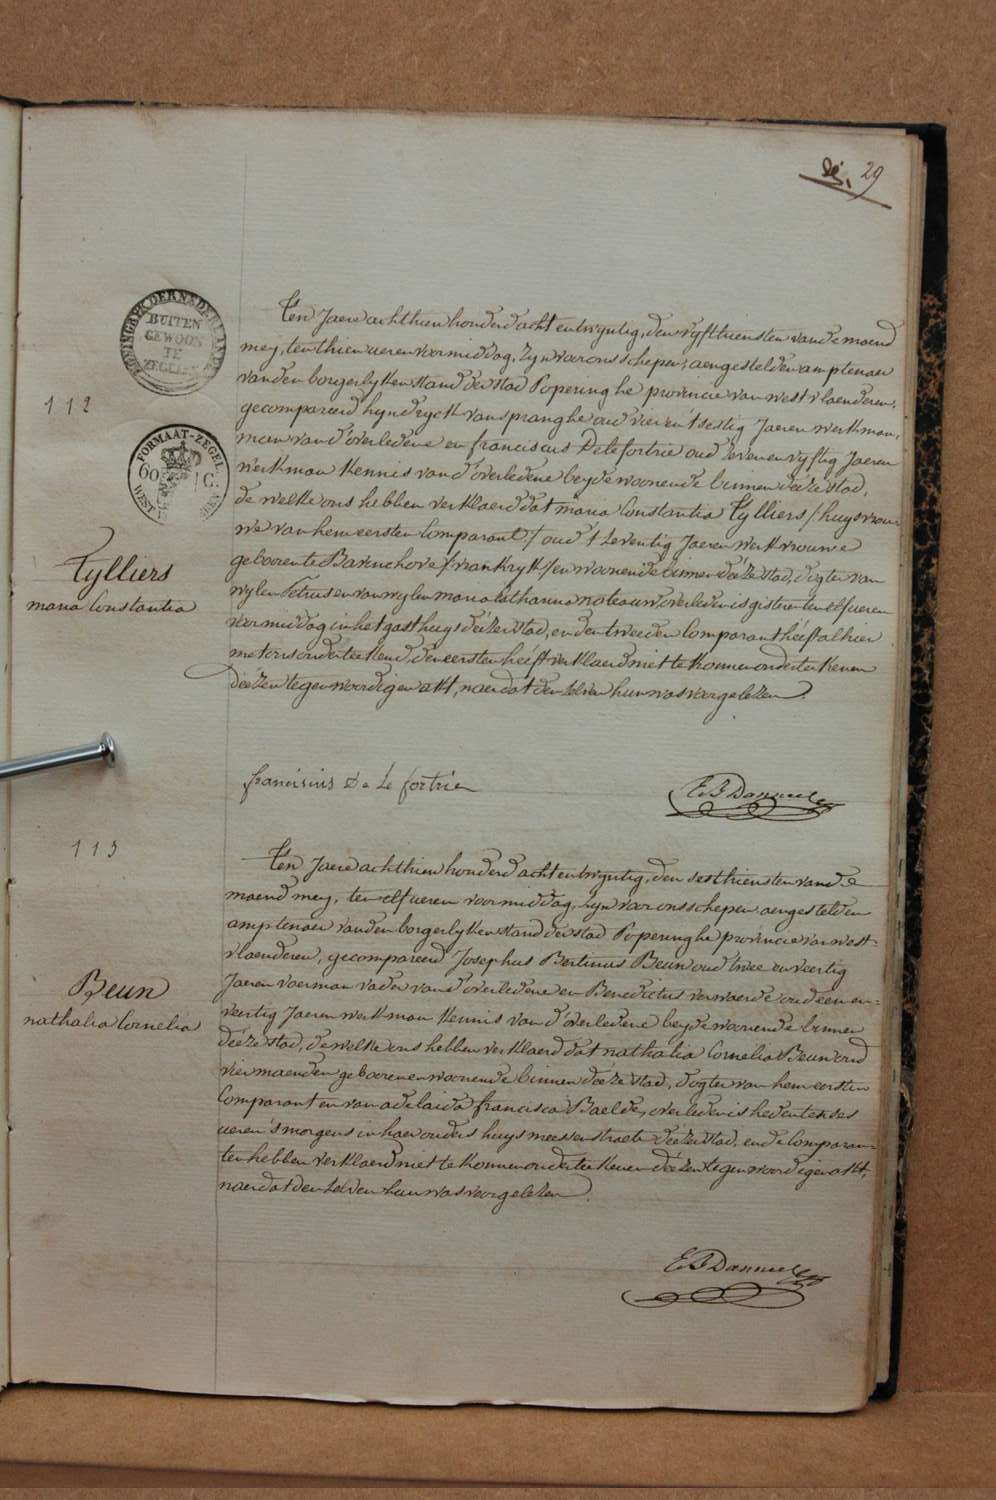 29
KONINGRYK DER NEDERLANDEN
BUITEN
GEWOON
TE
ZEGELEN
112
FORMAAT-ZEGEL
60
WEST
Tylliers
maria Constantia
Ten Jaere achthien honderd acht en twyntig, den vyfthiensten van de maend
mey, ten thien ueren voormiddag, zyn voor ons schepen, aengestelden amptenaer
van den borgerlyken stand der stad Poperinghe provincie van west vlaenderen,
gecompareerd hyndryck van spranghe oud vier en 't sestig Jaeren werkman,
man van d'overledene en franciscus Delefortrie oud zeven en vyftig Jaeren
werkman kennis van d'overledene beyde woonende binnen deeze stad,
de welke ons hebben verklaerd dat maria Constantia Tylliers / huysvrou-
we van hem eersten Comparant / oud 't zeventig Jaeren werkvrouwe
geboren te Bavinchove / vrankryk / en woonende binnen deeze stad, dogter van
wylen Petrus en van wylen maria Catharina noteauw overleden is gisteren ten elf ueren
voormiddag in het gasthuys deezer stad, en den tweeden Comparant heeft alhier
met ons onderteekend, den eersten heeft verklaerd niet te konnen onderteekenen
deezen tegenwoordigen akt, naer dat den zelven hun was voorgelezen.
francisius De Le fortrie
E B Danneel
113
Beun
nathalia Cornelia
Ten Jaere achthien honderd acht en twyntig, den sesthiensten van de
maend mey, ten elf ueren voormiddag, zyn voor ons schepen aengestelden
amptenaer van den borgerlyken stand der stad Poperinghe provincie van west-
vlaenderen, gecompareerd Josephus Bertinus Beun oud twee en veertig
Jaeren voerman vader van d'overledene en Benedictus verwaerde oud een en
veertig Jaeren werkman kennis van d'overledene beyde woonende binnen
deeze stad, de welke ons hebben verklaerd dat nathalia Cornelia Beun oud
vier maenden geboren en woonende binnen deeze stad, dogter van hem eersten
Comparant en van adelaida francisca Baelde, overleden is heden ten ses
ueren 's morgens in haer ouders huys meessenstraete deezer stad, en de Comparan-
ten hebben verklaerd niet te konnen onderteekenen deezen tegenwoordigen akt,
naer dat den zelven hun was voorgelezen.
E B Danneel